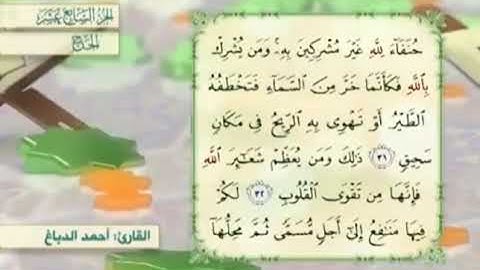 الجزء السابع عشر
الحج
حُنَفَآءَ لِلَّهِ غَيْرَ مُشْرِكِينَ بِهِۦ ۚ وَمَن يُشْرِكْ
بِٱللَّهِ فَكَأَنَّمَا خَرَّ مِنَ ٱلسَّمَآءِ فَتَخْطَفُهُ
ٱلطَّيْرُ أَوْ تَهْوِى بِهِ ٱلرِّيحُ فِى مَكَانٍ
سَحِيقٍ ٣١ ذَٰلِكَ وَمَن يُعَظِّمْ شَعَـٰٓئِرَ ٱللَّهِ
فَإِنَّهَا مِن تَقْوَى ٱلْقُلُوبِ ٣٢ لَكُمْ
فِيهَا مَنَـٰفِعُ إِلَىٰٓ أَجَلٍ مُّسَمًّى ثُمَّ مَحِلُّهَآ
القارئ: أحمد الدباغ